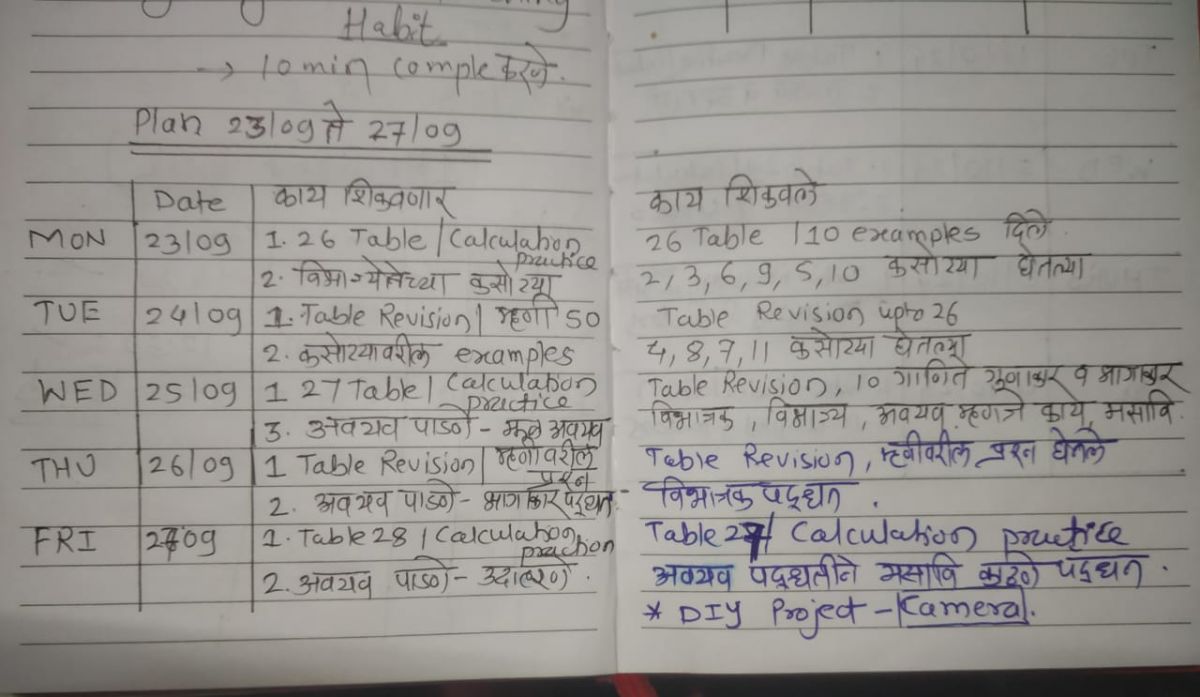 Habit
→ 10 min comple करणे.
Plan 23/09 ते 27/09
Date काय शिकवणार काय शिकवले
MON 23/09 1. 26 Table / Calculation practice 26 Table / 10 examples दिले.
2. विभाज्यतेच्या कसोट्या 2, 3, 6, 9, 5, 10 कसोट्या घेतल्या
TUE 24/09 1. Table Revision / म्हणी 50 Table Revision upto 26
2. कसोट्यावरील examples 4, 8, 7, 11 कसोट्या घेतल्या
WED 25/09 1 27 Table / Calculation practice Table Revision, 10 गणिते गुणाकार व भागाकार
3. अवयव पाडणे - मूळ अवयव विभाजक, विभाज्य, अवयव म्हणजे काय, मसावि.
THU 26/09 1 Table Revision / म्हणीवरील प्रश्न Table Revision, म्हणीवरील प्रश्न घेतले
2. अवयव पाडणे - भागाकार पद्धत - विभाजक पद्धत.
FRI 27/09 1. Table 28 / Calculation praction Table 27 / Calculation practice
2. अवयव पाडणे - उदाहरणे. अवयव पद्धतीने मसावि काढणे पद्धत.
* DIY Project - Kamera.